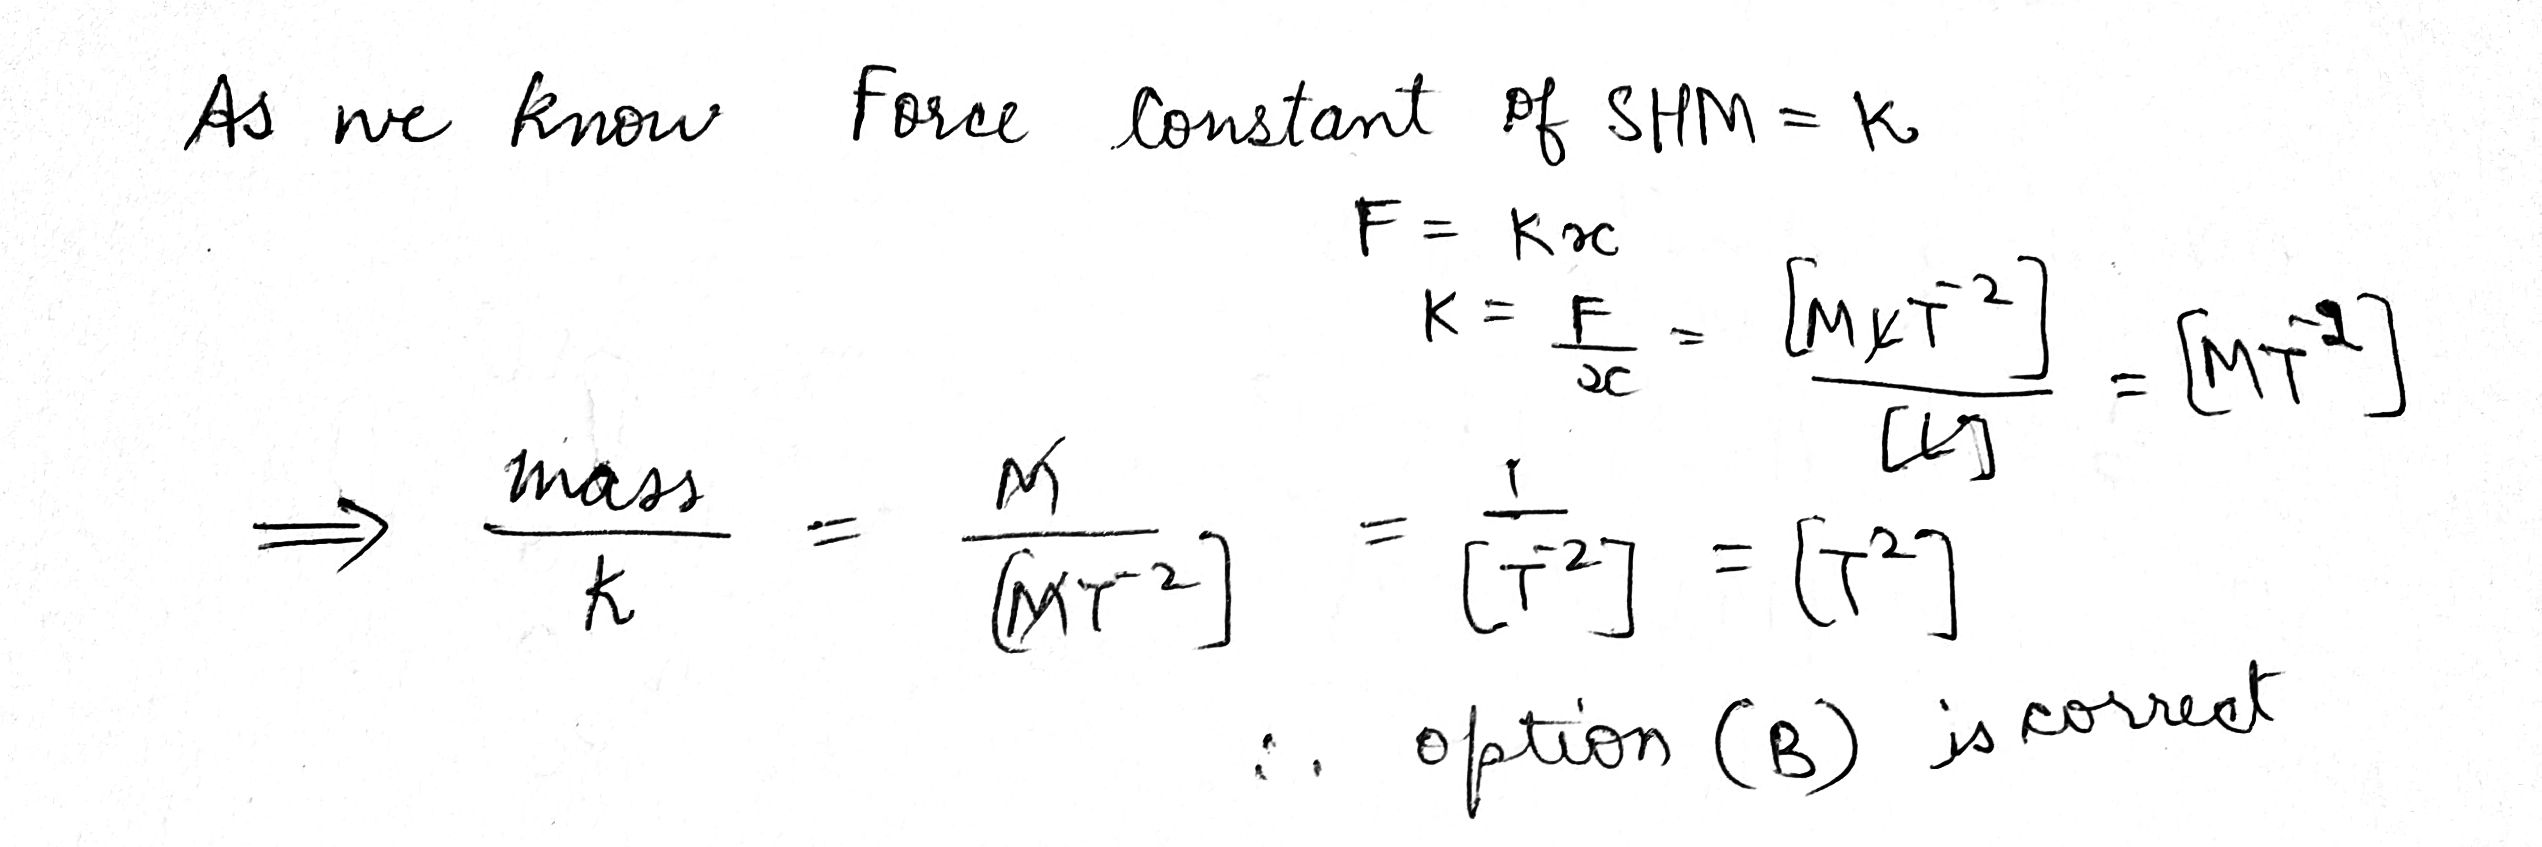 As we know Force Constant of SHM = K
F = Kx
K = F/x = [MLT⁻²]/[L] = [MT⁻²]
⇒ mass/k = M/[MT⁻²] = 1/[T⁻²] = [T²]
∴ option (B) is correct